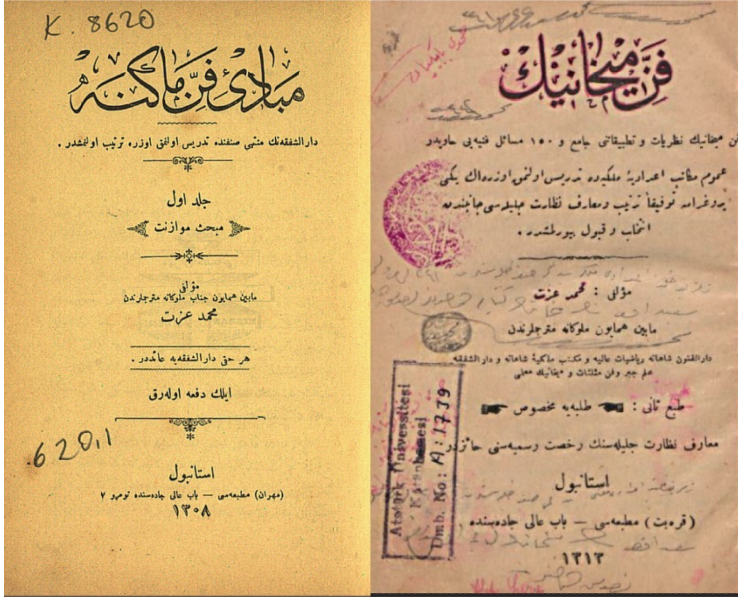 K. 8620
مبادئ فن ماکنه
دارالشفقه‌نك منتهی صنفنده تدریس اولنمق اوزره ترتیب اولنمشدر .
جلد اول
مبحث موازنت
مؤلفی
مابین همایون جناب ملوکانه مترجملرندن
محمد عزت
هر حقی دارالشفقه‌یه عائددر .
ایلك دفعه اوله‌رق
620,1
استانبول
(مهران) مطبعه‌سی — باب عالی جاده‌سنده نومرو ٧
١٣٠٨
فن میخانیك
میخانیك نظریات و تطبیقاتنی جامع و ١٥٠ مسائل فنیه‌یی حاویدر
عموم مکاتب اعدادیهٔ ملکیه‌ده تدریس اولنمق اوزره اك یکی
پروغرامه توفیقاً ترتیب و معارف نظارت جلیله‌سی جانبندن
انتخاب و قبول بیورلمشدر .
مؤلفی : محمد عزت
مابین همایون ملوکانه مترجملرندن
دارالفنون شاهانه ریاضیات عالیه و مکتب ملکیهٔ شاهانه و دارالشفقه
علم جبر و فن مثلثات و میخانیك معلمی
طبع ثانی : طلبه‌یه مخصوص
معارف نظارت جلیله‌سنك رخصت رسمیه‌سنی حائزدر
استانبول
(قره‌بت) مطبعه‌سی — باب عالی جاده‌سنده
١٣١٣
Atatürk Üniversitesi
Kütüphanesi
Dmb. No: A: 1739